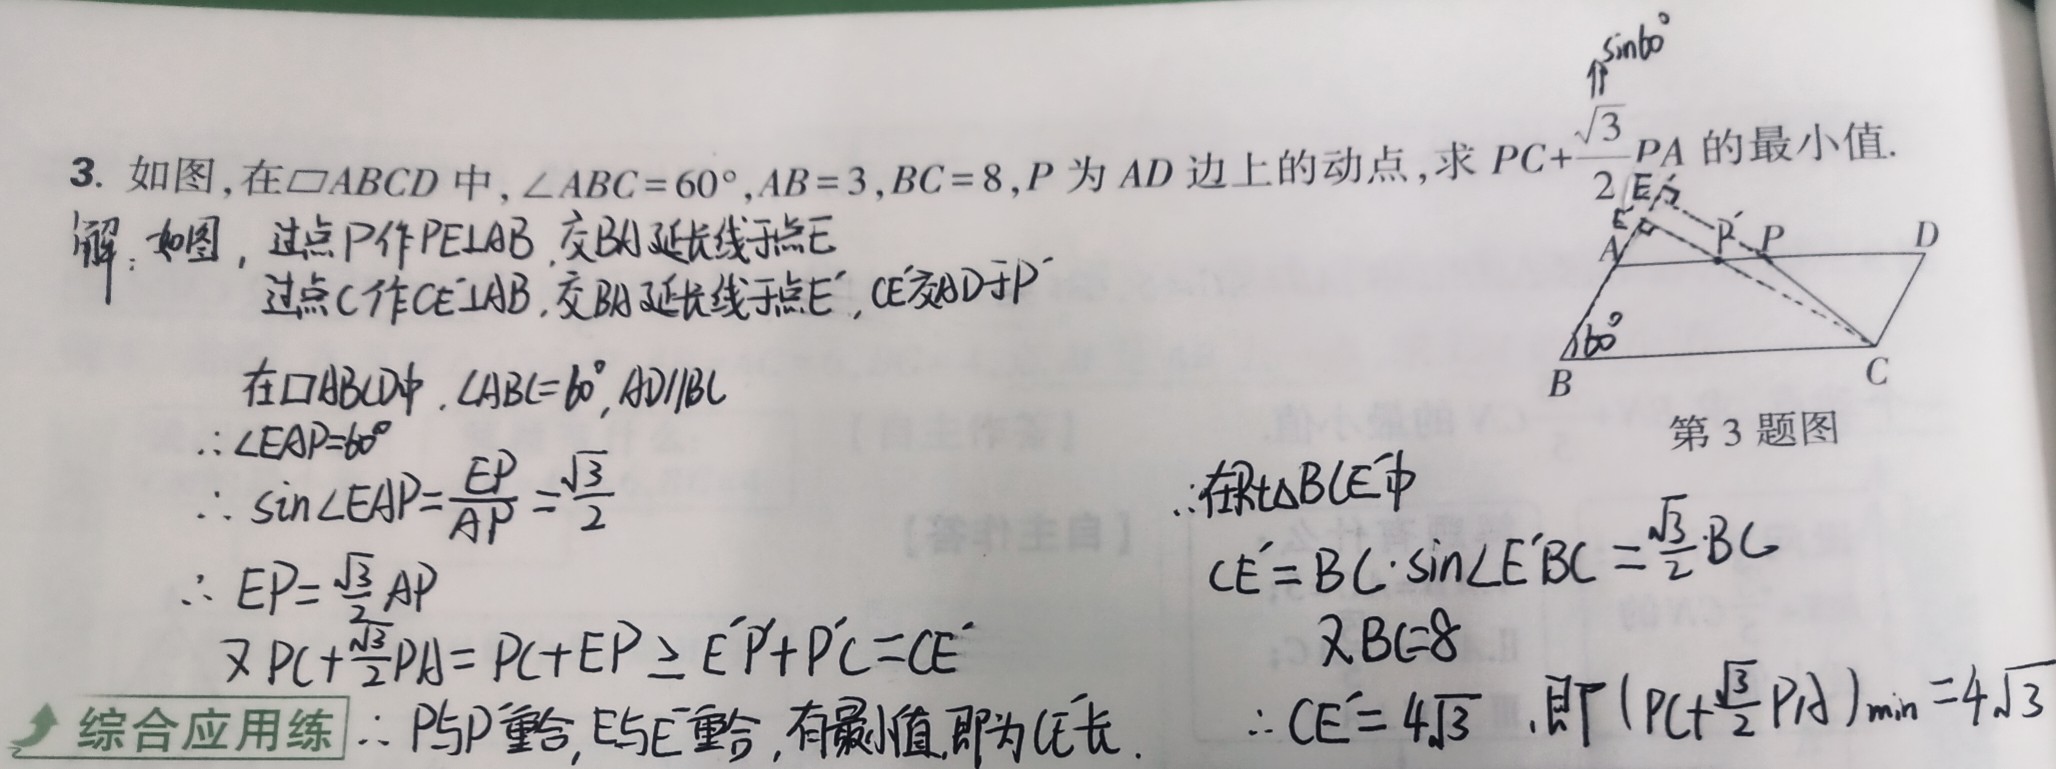 sin60°
3. 如图,在▱ABCD中,∠ABC=60°,AB=3,BC=8,P为AD边上的动点,求PC+√3/2PA的最小值.
解:如图,过点P作PE⊥AB,交BA延长线于点E
过点C作CE′⊥AB,交BA延长线于点E′,CE′交AD于P′
在▱ABCD中,∠ABC=60°,AD//BC
∴∠EAP=60°
∴sin∠EAP=EP/AP=√3/2
∴EP=√3/2AP
又PC+√3/2PA=PC+EP≥E′P′+P′C=CE′
∴P与P′重合,E与E′重合,有最小值,即为CE′长.
E
E′
A
P′
P
D
60°
B
C
第3题图
∴在Rt△BCE′中
CE′=BC·sin∠E′BC=√3/2·BC
又BC=8
∴CE′=4√3,即(PC+√3/2PA)min=4√3
综合应用练